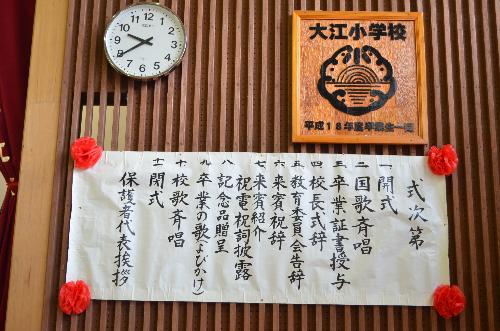 大江小学校
平成18年度卒業生一同
式次第
一 開式
二 国歌斉唱
三 卒業証書授与
四 校長式辞
五 教育委員会告辞
六 来賓祝辞
七 来賓紹介
祝電祝詞披露
八 記念品贈呈
九 卒業の歌(よびかけ)
十 校歌斉唱
十一 閉式
保護者代表挨拶
12
1
2
3
4
5
6
7
8
9
10
11